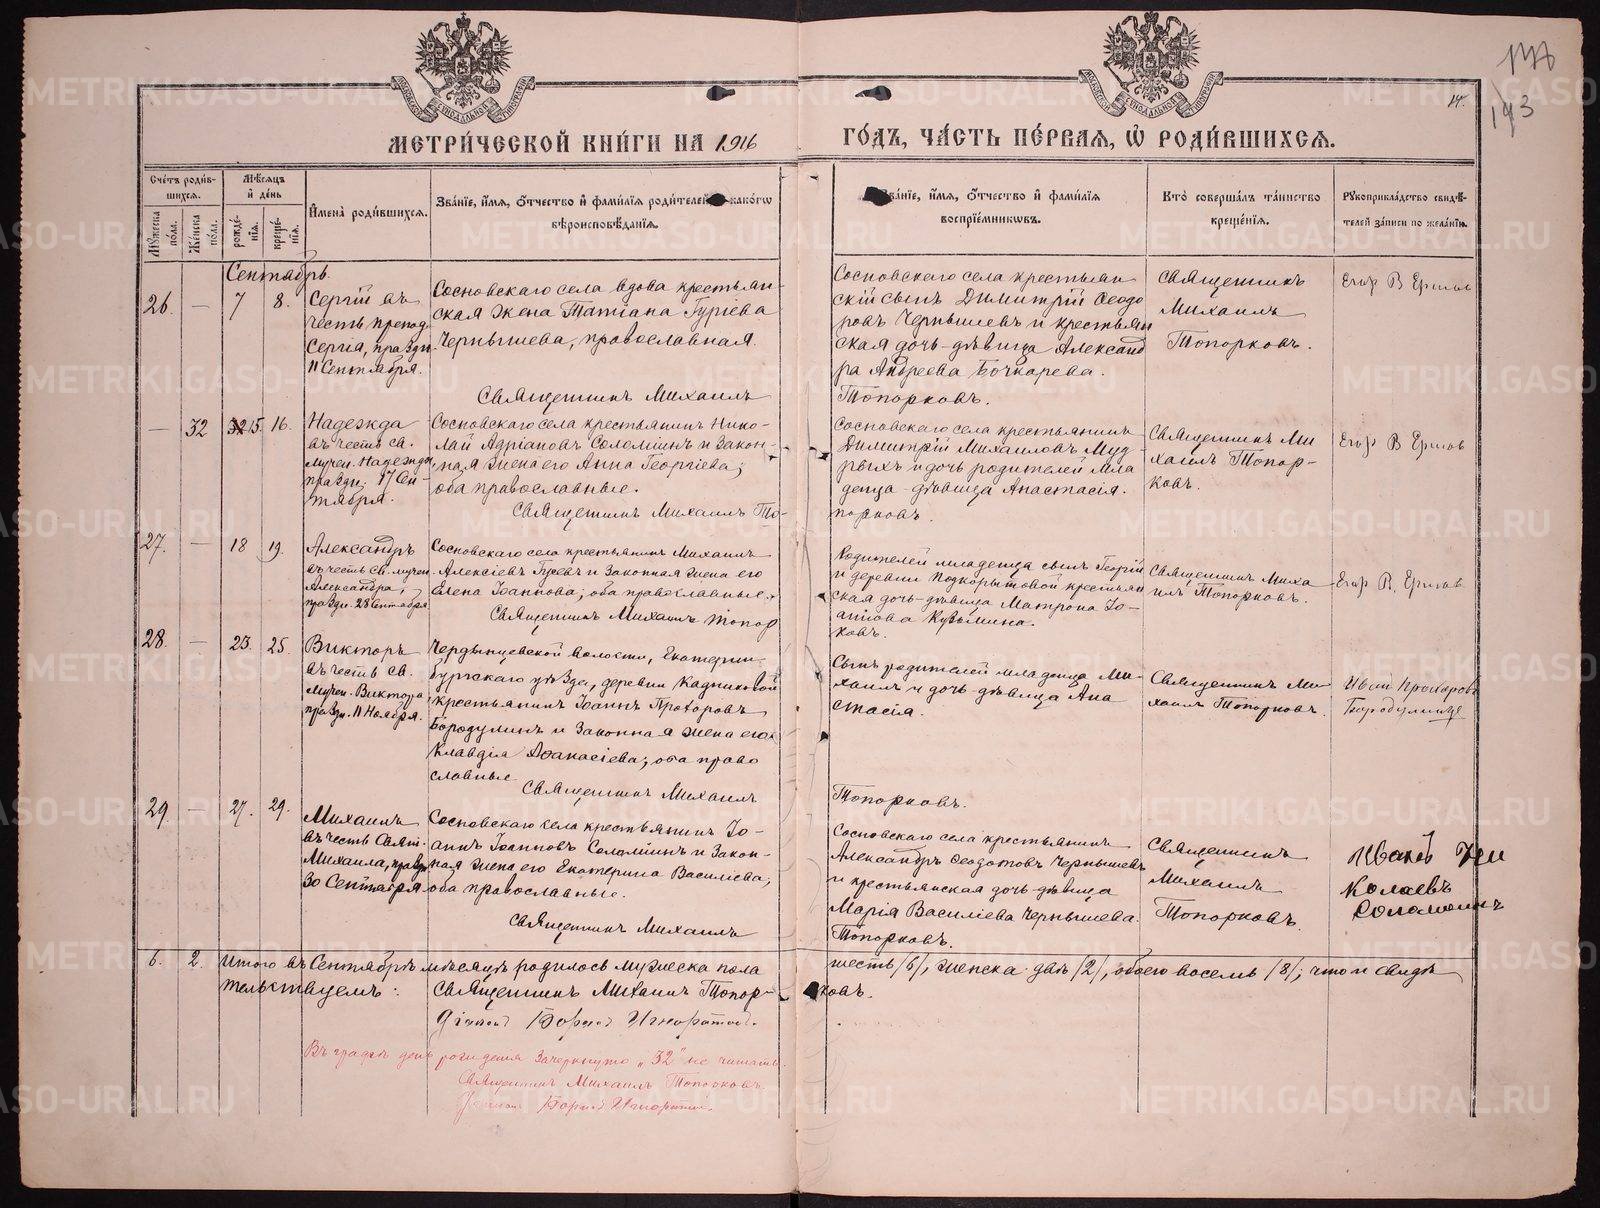 193
14.
МЕТРИ́ЧЕСКОЙ КНИ́ГИ НА 1916 ГО́ДЪ, ЧА́СТЬ ПЕ́РВАЯ, Ѡ҆ РОДИ́ВШИХСЯ.
Сче́тъ роди́в-
шихся.
Мꙋжеска по́ла.
Же́нска по́ла.
Мѣ́сяцъ
и҆ де́нь
рожде́-
нїя.
креще́-
нїя.
И҆мена̀ роди́вшихся.
Зва́нїе, и҆́мя, ѻ҆́тчество и҆ фами́лїя роди́телей, како́гѡ
вѣроисповѣ́данїя.
Зва́нїе, и҆́мя, ѻ҆́тчество и҆ фами́лїя
воспрїе́мникѡвъ.
Кто̀ соверша́лъ та́инство
креще́нїя.
Рꙋкоприкла́дство свидѣ́-
телей за́писи по жела́нїю.
Сентябрь.
26. — 7 8.
Сергій въ
честь препод.
Сергія, праздн.
11 Сентября.
Сосновскаго села вдова крестьян-
ская жена Татіана Гуріева
Чернышева, православная.
Священникъ Михаилъ
Сосновскаго села крестьян-
скій сынъ Димитрій Ѳеодо-
ровъ Чернышевъ и крестьян
ская дочь-дѣвица Александ
ра Андреева Бочкарева.
Топорковъ.
Священникъ
Михаилъ
Топорковъ.
Егор В Ершов
— 32 32 15. 16.
Надежда
въ честь св.
мучен. Надежды,
праздн. 17 Сен-
тября.
Сосновскаго села крестьянинъ Нико-
лай Адріановъ Соломинъ и закон-
ная жена его Анна Георгіева,
оба православные.
Священникъ Михаилъ То-
Сосновскаго села крестьянинъ
Димитрій Михаиловъ Муд
рыхъ и дочь родителей мла
денца-дѣвица Анастасія.
порковъ.
Священникъ Ми
хаилъ Топор-
ковъ.
Егор В Ершов
27. — 18 19.
Александръ
въ честь св. мучен.
Александра,
праздн. 28 Сентября
Сосновскаго села крестьянинъ Михаилъ
Алексіевъ Гусевъ и законная жена его
Елена Іоаннова, оба православные.
Священникъ Михаилъ Топор
Родителей младенца сынъ Георгій
и деревни Подкорытовой крестьян
ская дочь-дѣвица Матрона Іо-
аннова Кузьмина.
ковъ.
Священникъ Миха
илъ Топорковъ.
Егор В. Ершов
28. — 23. 25.
Викторъ
въ честь св.
мучен. Виктора,
праздн. 11 Ноября.
Чердынцевской волости, Екатерин-
бургскаго уѣзда, деревни Кадниковой
крестьянинъ Іоаннъ Прохоровъ
Бородулинъ и законная жена его
Клавдія Аѳанасіева, оба право
славные
Священникъ Михаилъ
Сынъ родителей младенца Ми-
хаилъ и дочь-дѣвица Ана
стасія.
Топорковъ.
Священникъ Ми
хаилъ Топорковъ.
Иван Прохоровъ
29. — 27. 29.
Михаилъ
въ честь Свят.
Михаила, праздн.
30 Сентября
Сосновскаго села крестьянинъ Іо-
аннъ Іоанновъ Соломинъ и закон-
ная жена его Екатерина Василіева,
оба православные.
Священникъ Михаилъ
Сосновскаго села крестьянинъ
Александръ Ѳеодотовъ Чернышевъ
и крестьянская дочь-дѣвица
Марія Василіева Чернышева.
Топорковъ.
Священникъ
Михаилъ
Топорковъ.
Иванъ Ни
колаевъ
Соломинъ
6. 2. Итого въ Сентябрѣ мѣсяцѣ родилось мужеска пола шесть /6/, женска двѣ /2/, обоего восемь /8/; что и свидѣ
тельствуемъ: Священникъ Михаилъ Топорковъ.
Въ графѣ день рожденія зачеркнуто „32“ не читать.
Священникъ Михаилъ Топорковъ.
METRIKI.GASO-URAL.RU